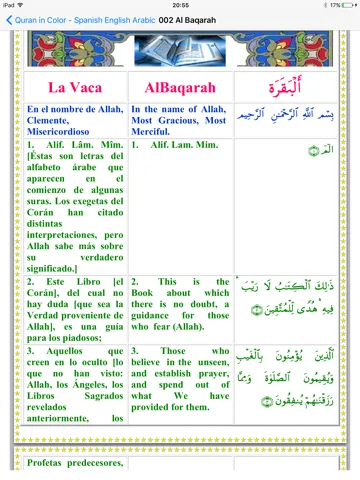 iPad
20:55
17%
Quran in Color - Spanish English Arabic
002 Al Baqarah
La Vaca
AlBaqarah
أَلْبَقَرَة
En el nombre de Allah,
Clemente,
Misericordioso
In the name of Allah,
Most Gracious, Most
Merciful.
بِسْمِ ٱللَّهِ ٱلرَّحْمَٰنِ ٱلرَّحِيمِ
1. Alif. Lâm. Mîm.
[Éstas son letras del
alfabeto árabe que
aparecen en el
comienzo de algunas
suras. Los exegetas del
Corán han citado
distintas
interpretaciones, pero
Allah sabe más sobre
su verdadero
significado,]
1. Alif. Lam. Mim.
الٓمٓ ۝١
2. Este Libro [el
Corán], del cual no
hay duda [que sea la
Verdad proveniente de
Allah], es una guía
para los piadosos;
2. This is the
Book about which
there is no doubt, a
guidance for those
who fear (Allah).
ذَٰلِكَ ٱلْكِتَٰبُ لَا رَيْبَ ۛ
فِيهِ ۛ هُدًى لِّلْمُتَّقِينَ ۝٢
3. Aquellos que
creen en lo oculto [lo
que no han visto:
Allah, los Ángeles, los
Libros Sagrados
revelados
anteriormente, los
3. Those who
believe in the unseen,
and establish prayer,
and spend out of
what We have
provided for them.
ٱلَّذِينَ يُؤْمِنُونَ بِٱلْغَيْبِ
وَيُقِيمُونَ ٱلصَّلَوٰةَ وَمِمَّا
رَزَقْنَٰهُمْ يُنفِقُونَ ۝٣
Profetas predecesores,